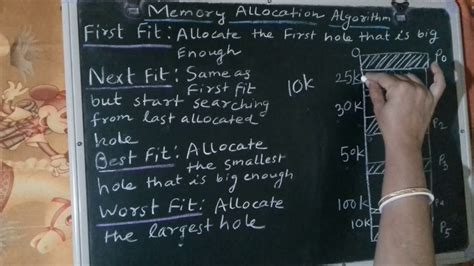 Memory Allocation Algorithm
First Fit: Allocate the First hole that is big
Enough
Next Fit: Same as
First fit
but start searching
from last allocated
hole
Best Fit: Allocate
the smallest
hole that is big enough
Worst Fit: Allocate
the largest hole
10k
0
P0
25k
30k
P2
50k
P3
100k
10k
P5